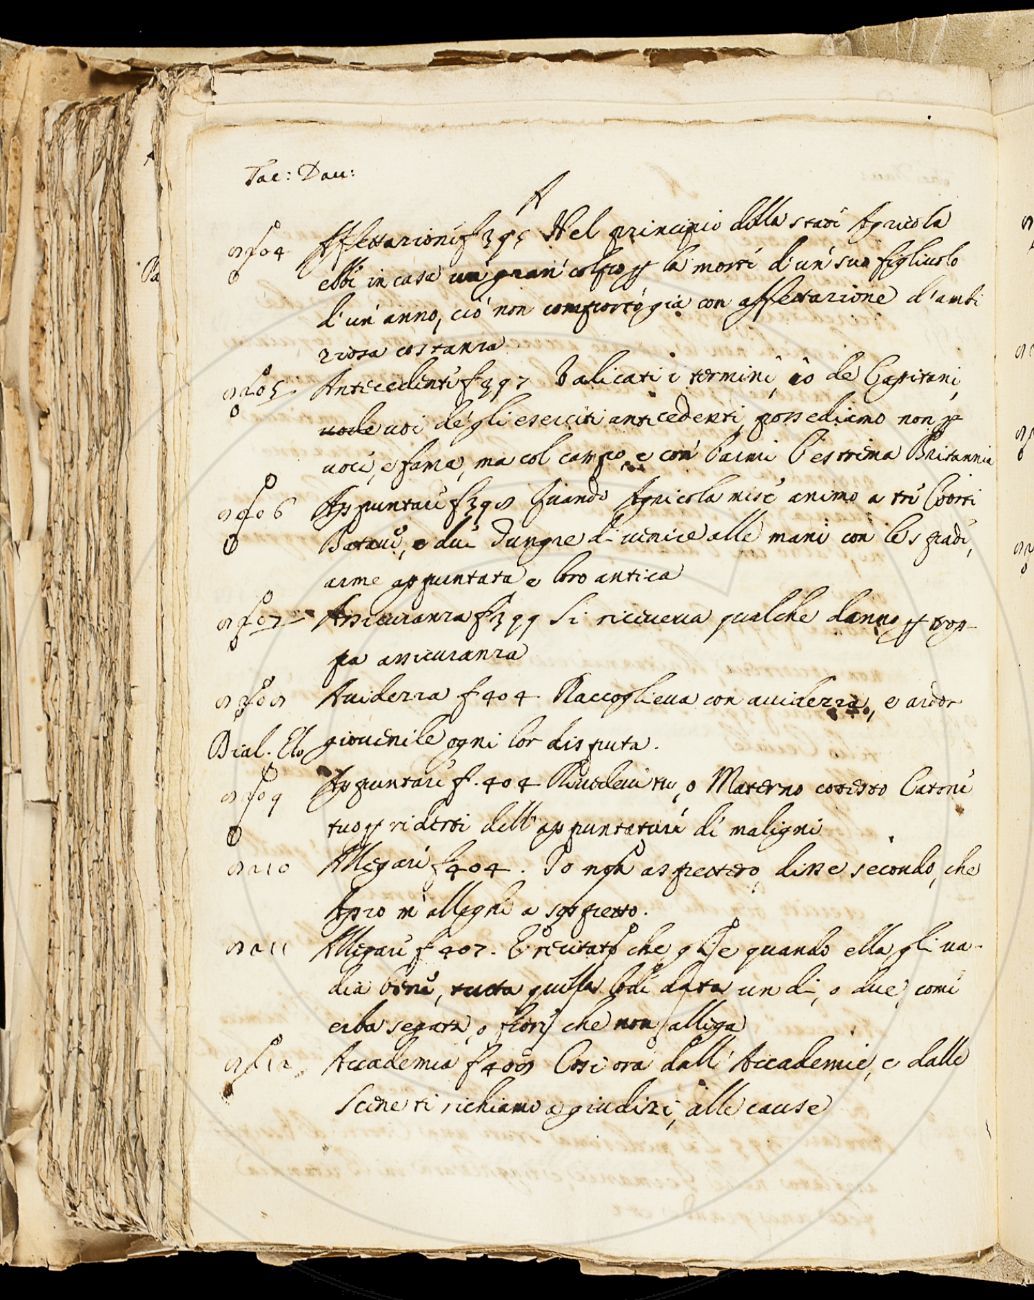 Tac: Dau:
A
Affettazioni f 395 Nel principio della state Agricola
ebbe in casa un gran colpo p la morte d'un suo figliuolo
d'un anno, ciò non comportò già con affettazione d'ambi
ziosa costanza
Antecedenti f 397 Valicati i termini, io de Capitani,
voi degli eserciti antecedenti possediamo non p
voce, e fama, ma col campo, e con l'armi l'estrema Britannia
Appuntare f 398 Quando Agricola mise animo a tre Coorti
Batave, e due Tungre di venire alle mani con le spade,
arme appuntata e loro antica
Assicuranza f 399 Si riceveva qualche danno p trop-
pa assicuranza
Avidezza f 404 Raccoglieva con avidezza, e ardor
Dial. Elo. giovenile ogni lor disputa.
Appuntare f. 404 tu, o Materno cotesto Catone
tuo p riderti dell' appuntature de maligni
Allegare f 404. Io non aspetterò, disse secondo, che
Apro m'alleghi a sospetto.
Allegare f 407. che quando ella gli va-
dia bene, tutta quella lode dura un dì, o due, come
erba segata, o fiori che non allega
Accademia f 408 Così ora dall' Accademie, e dalle
Scene ti richiamo a giudizi, alle cause